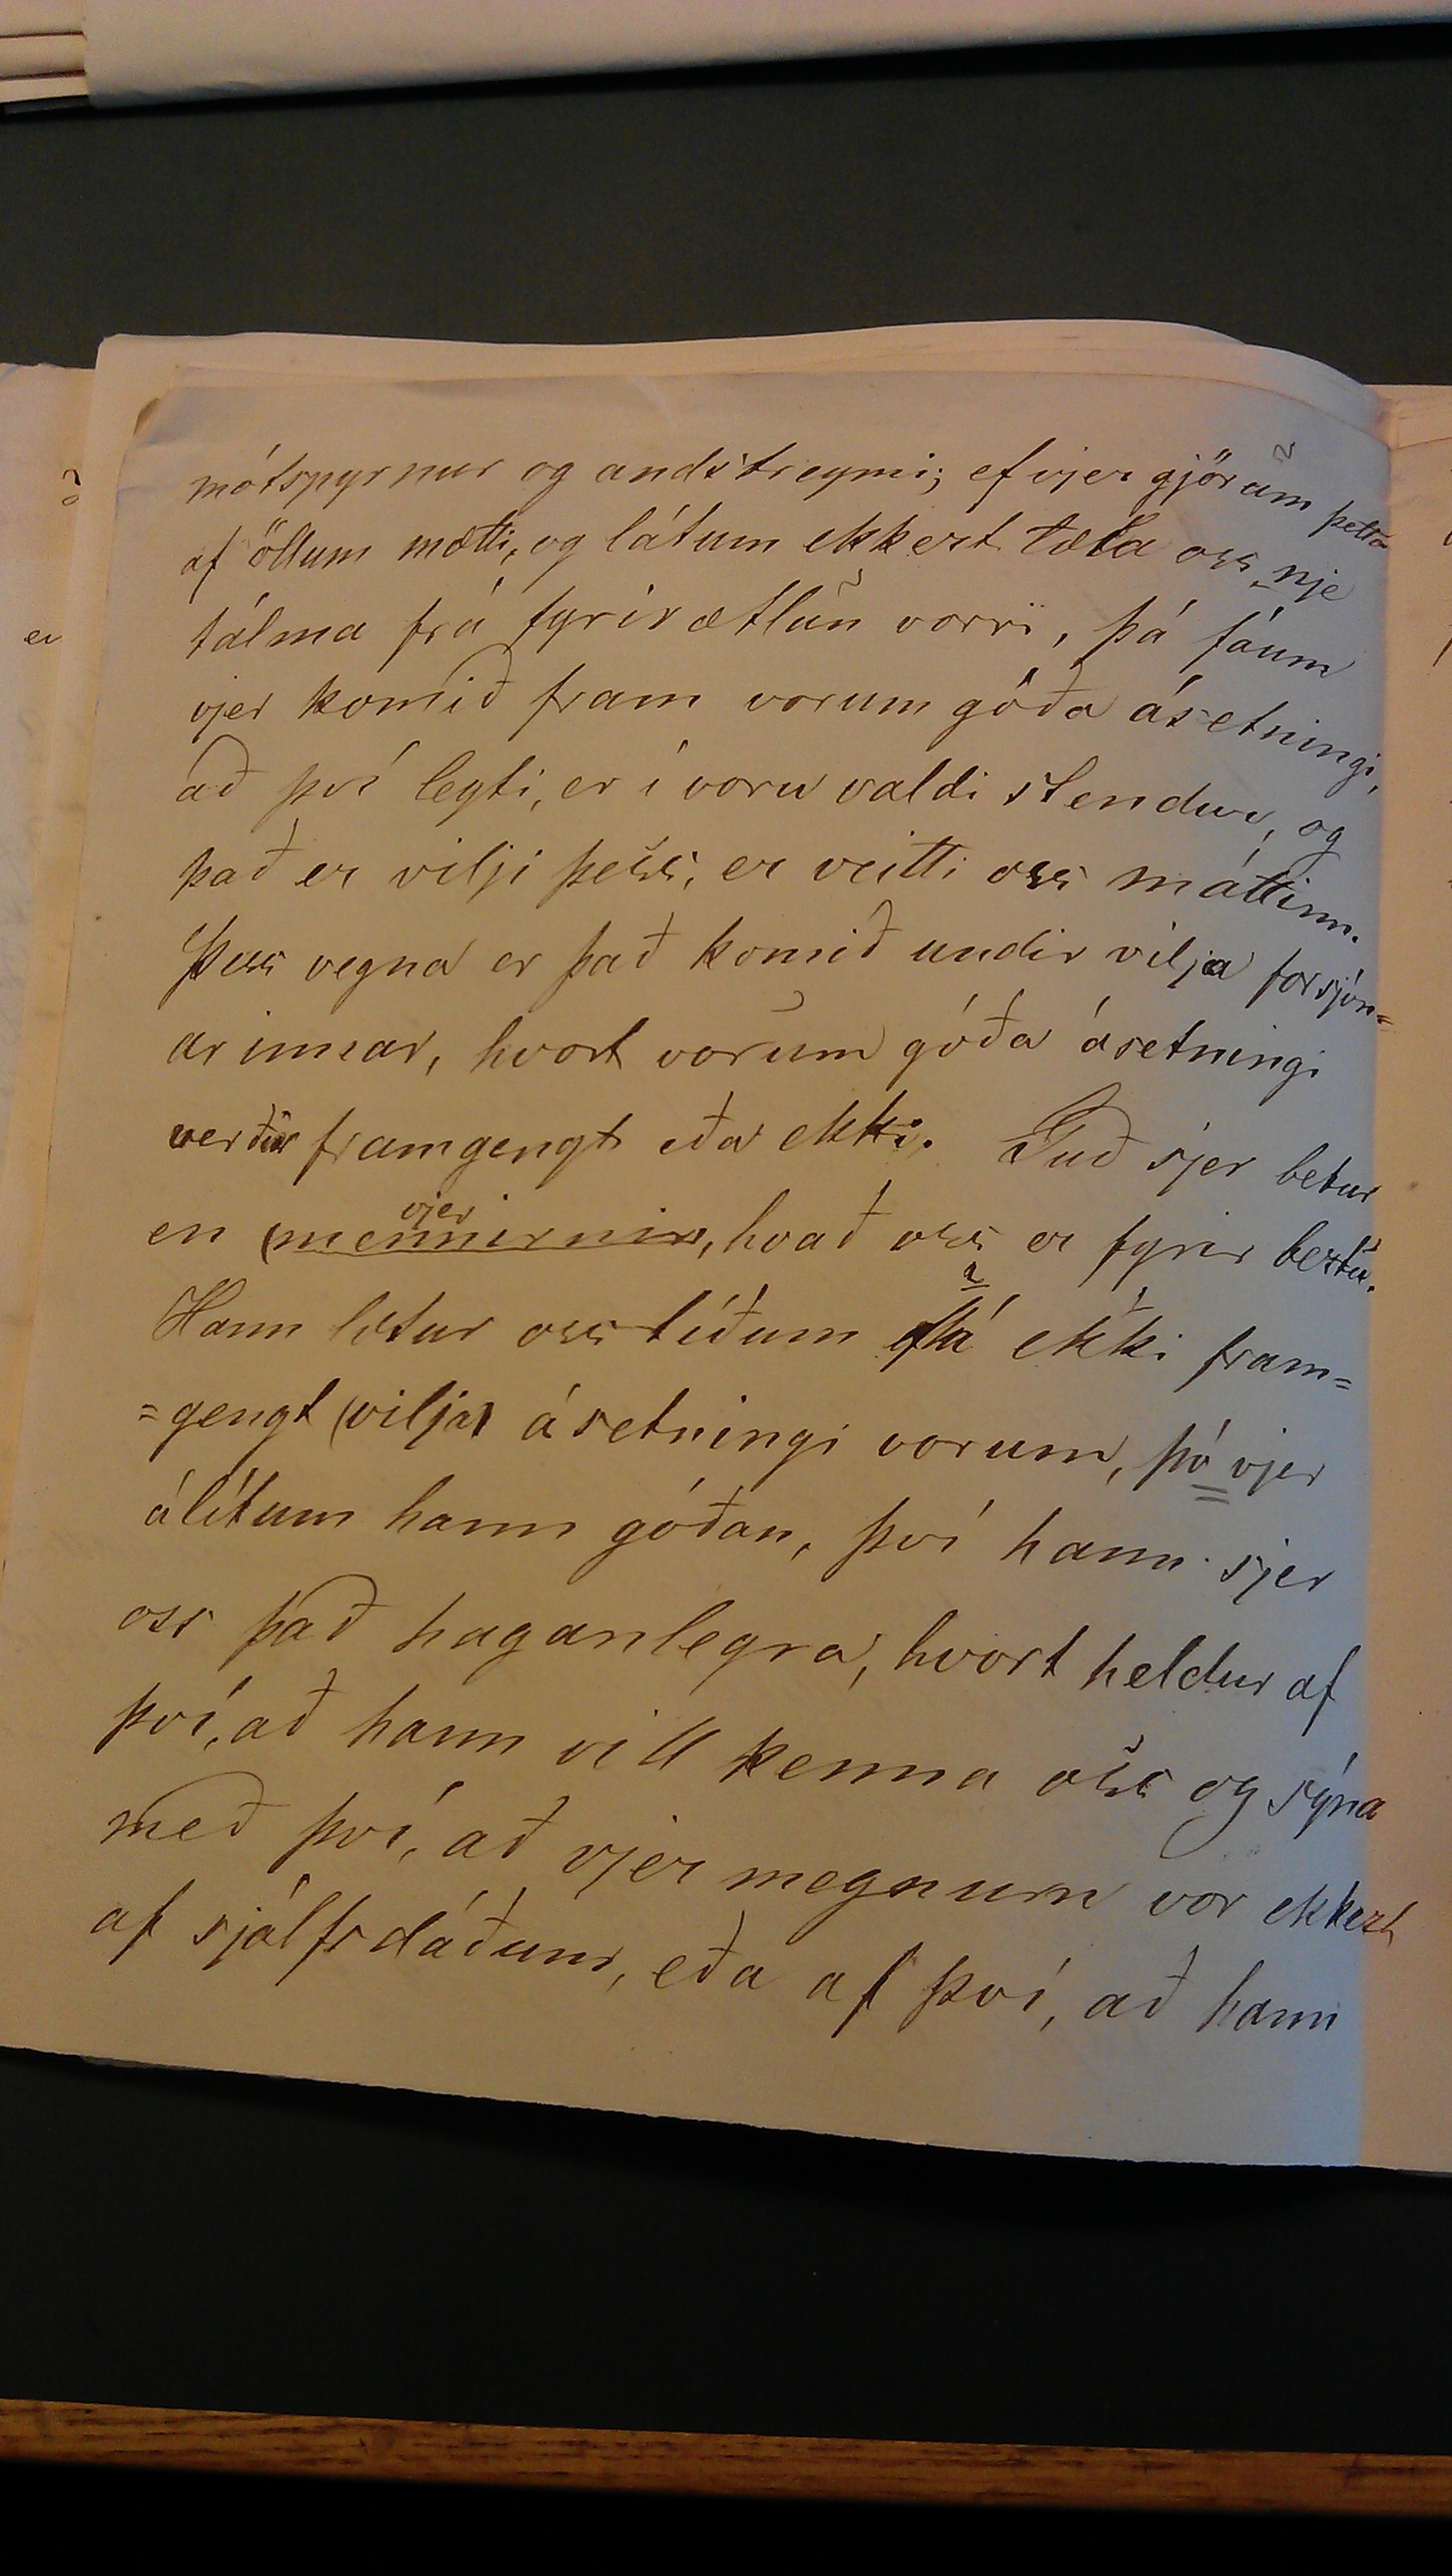 mótspyrnur og andstreymi; ef vjer gjörum þetta
af öllum mætti, og látum ekkert tæla oss nje
tálma frá fyrirætlun vorri, þá fáum
vjer komið fram vorum góða ásetningi,
að því leyti, er í voru valdi stendur, og
það er vilji þess, er veitti oss máttinn.
Þess vegna er það komið undir vilja forsjón=
arinnar, hvort vorum góða ásetningi
verður framgengt eða ekki. Guð sjer betur
vjer
en (mennirnir, hvað oss er fyrir beztu.
Hann lætur oss tíðum fá ekki fram=
=gengt (vilja) ásetningi vorum, þó vjer
álítum hann góðan, því hann sjer
oss það haganlegra, hvort heldur af
því, að hann vill kenna oss og sýna
með því, að vjer megnum vor ekkert
af sjálfsdáðum, eða af því, að hann
er